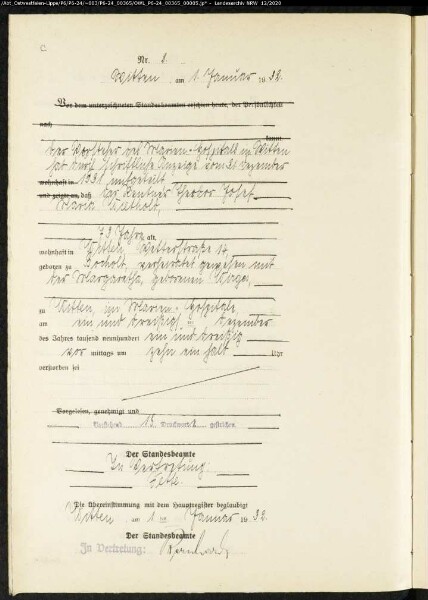 /Abt_Ostwestfalen-Lippe/P6/P6-24/~003/P6-24_00365/OWL_P6-24_00365_00005.jp* - Landesarchiv NRW 12/2020
C
Nr. 2.
Witten, am 1. Januar 1932.
Vor dem unterzeichneten Standesbeamten erschien heute, der Persönlichkeit
nach
kannt,
Der Vorsteher des Marien-Hospitals in Witten
hat durch schriftliche Anzeige vom 31. Dezember
wohnhaft in 1931 mitgeteilt,
und zeigte an, daß der Rentner Theodor Josef
Maria
73 Jahre alt,
wohnhaft in Witten, Wetterstraße 14,
geboren zu Bocholt, verheiratet gewesen mit
der Margaretha, geborenen
zu Witten, im Marien-Hospitale,
am ein und dreißigsten Dezember
des Jahres tausend neunhundert ein und dreißig
vor mittags um zehn ein halb Uhr
verstorben sei
Vorgelesen, genehmigt und
Vorstehend 13 Druckworte gestrichen.
Der Standesbeamte
In Vertretung.
Die Übereinstimmung mit dem Hauptregister beglaubigt
Witten, am 1. Januar 1932.
Der Standesbeamte
In Vertretung: